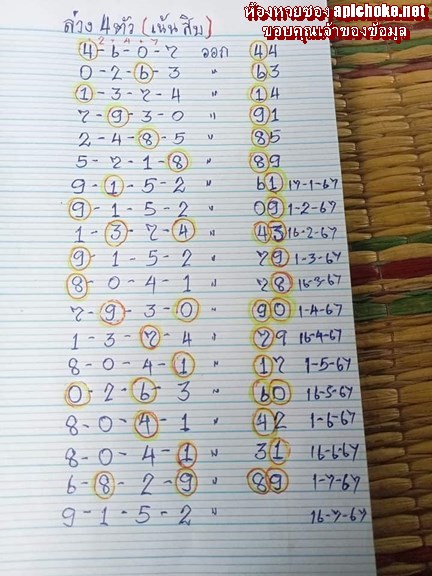 ห้องหวยซอง aplchoke.net
ขอบคุณเจ้าของข้อมูล
ล่าง 4 ตัว (เน้นสิบ)
4-6-0-7 ออก 44
0-2-6-3 " 63
1-3-7-4 " 14
7-9-3-0 " 91
2-4-8-5 " 85
5-7-1-8 " 89
9-1-5-2 " 61 17-1-67
9-1-5-2 " 09 1-2-67
1-3-7-4 " 43 16-2-67
9-1-5-2 " 79 1-3-67
8-0-4-1 " 78 16-3-67
7-9-3-0 " 90 1-4-67
1-3-7-4 " 79 16-4-67
8-0-4-1 " 17 1-5-67
0-2-6-3 " 60 16-5-67
8-0-4-1 " 42 1-6-67
8-0-4-1 " 31 16-6-67
6-8-2-9 " 89 1-7-67
9-1-5-2 " 16-7-67